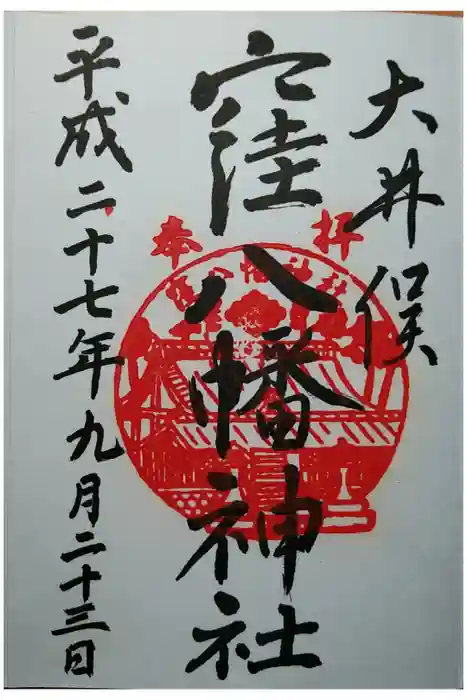 大井俣
奉拝
窪八幡神社
窪八幡神社
平成二十七年九月二十三日